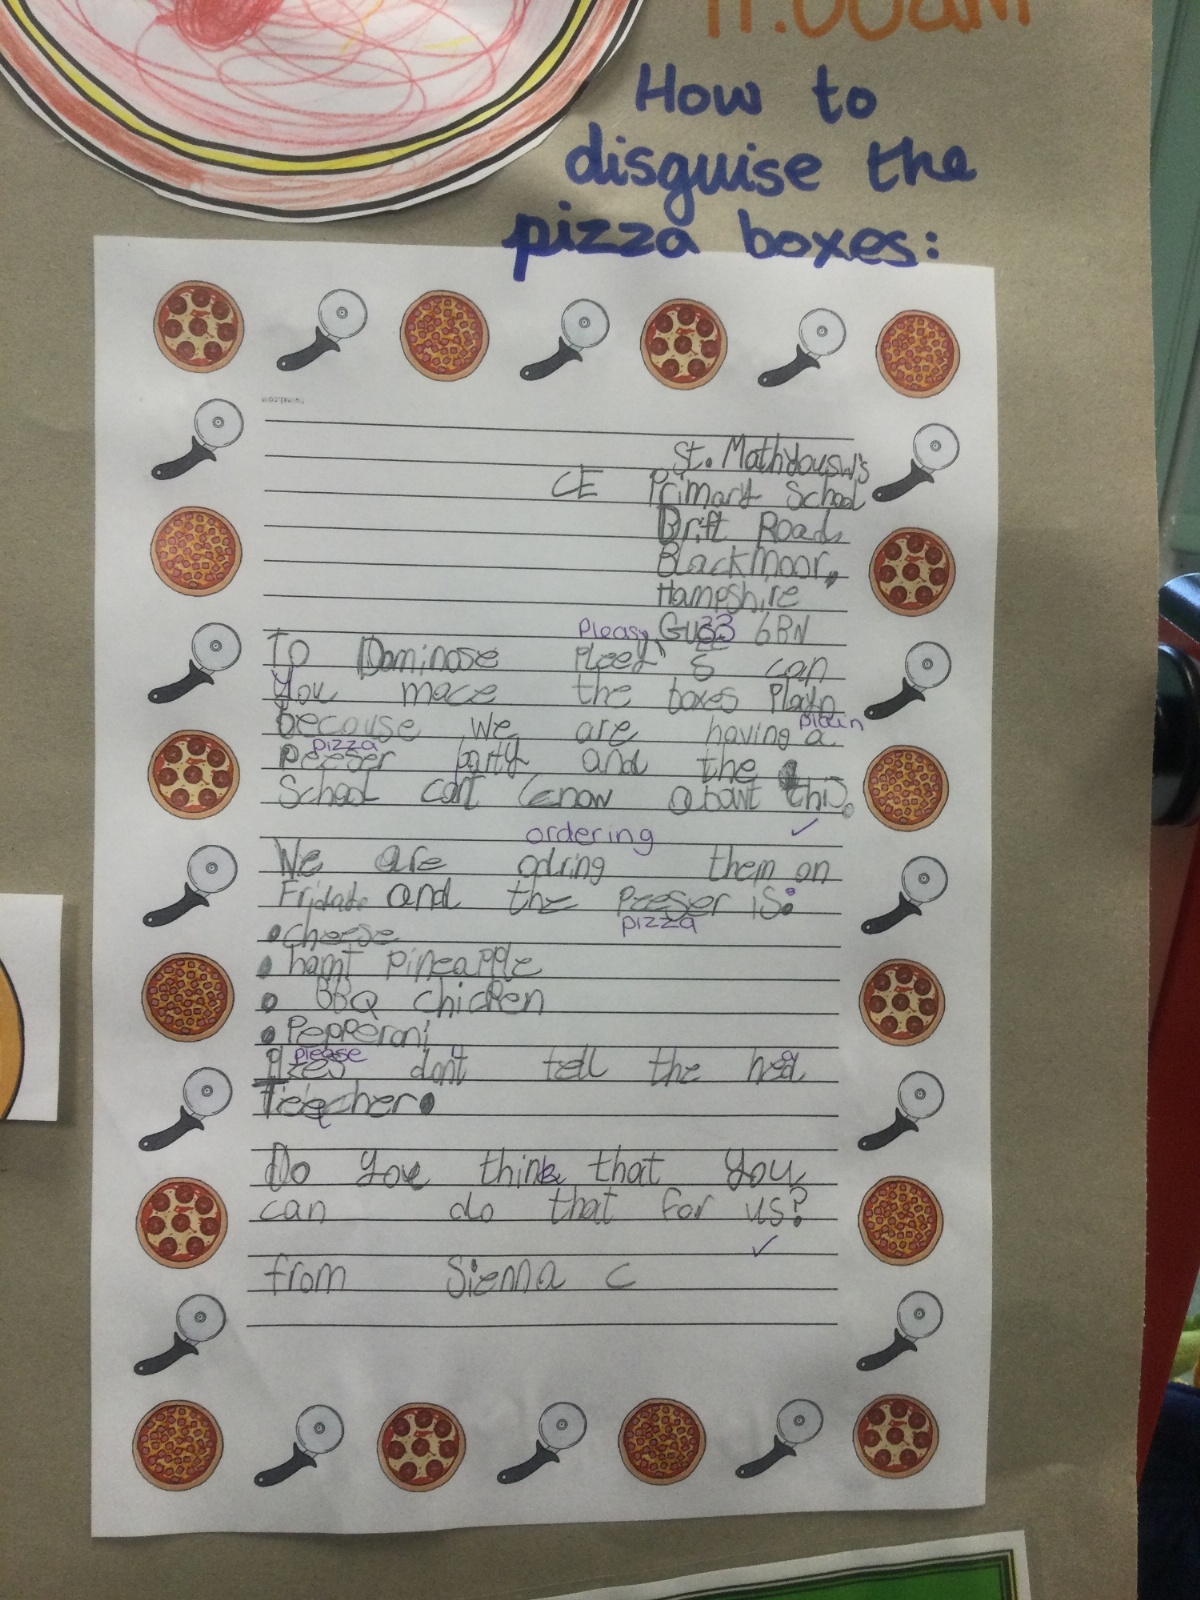 11.00am
How to
disguise the
pizza boxes:
St. Mathyousw's
CE Primary School
Drift Road,
Blackmoor,
Hampshire
GU33 6BN
Please
To Dominose pleey can
you mace the boxes playn
plain
because we are having a
pizza
peeser party and the
School cant know about this.
ordering
We are odring them on
Friday and the peeser is:
pizza
• cheese
• ham pineapple
• BBQ chicken
• Pepperoni
please
plzes don't tell the hed
Teacher.
Do you think that you
can do that for us?
from Sienna C